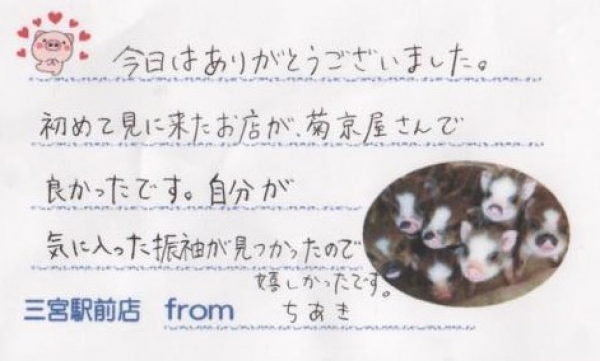 今日はありがとうございました。
初めて見に来たお店が、菊京屋さんで
良かったです。自分が
気に入った振袖が見つかったので
嬉しかったです。
三宮駅前店 from ちあき